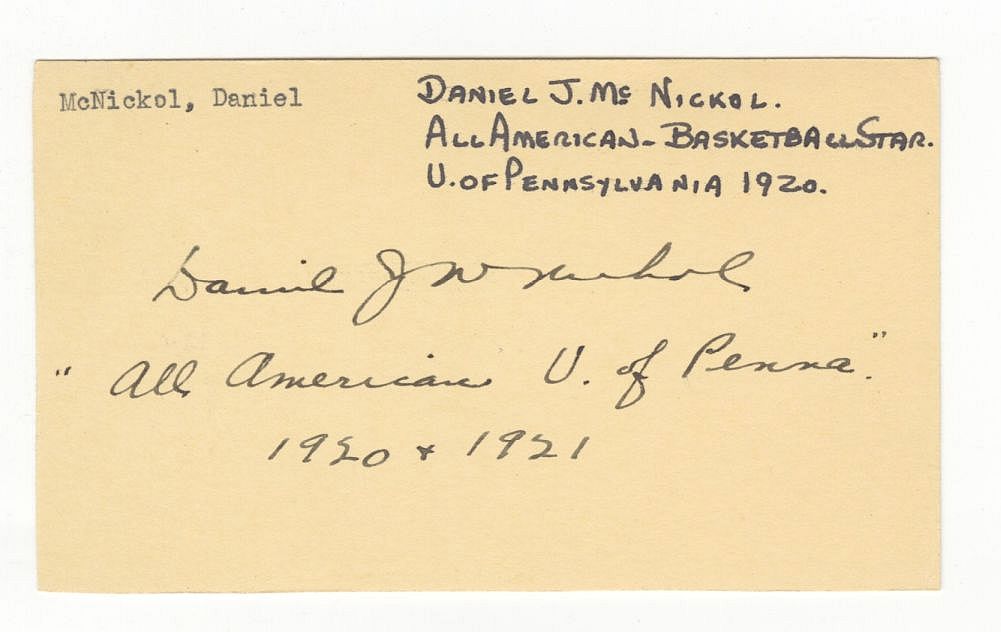 McNickol, Daniel
DANIEL J. Mc NICKOL.
ALL AMERICAN - BASKETBALL STAR.
U. OF PENNSYLVANIA 1920.
Daniel J McNickol
"All American U. of Penna."
1920 + 1921